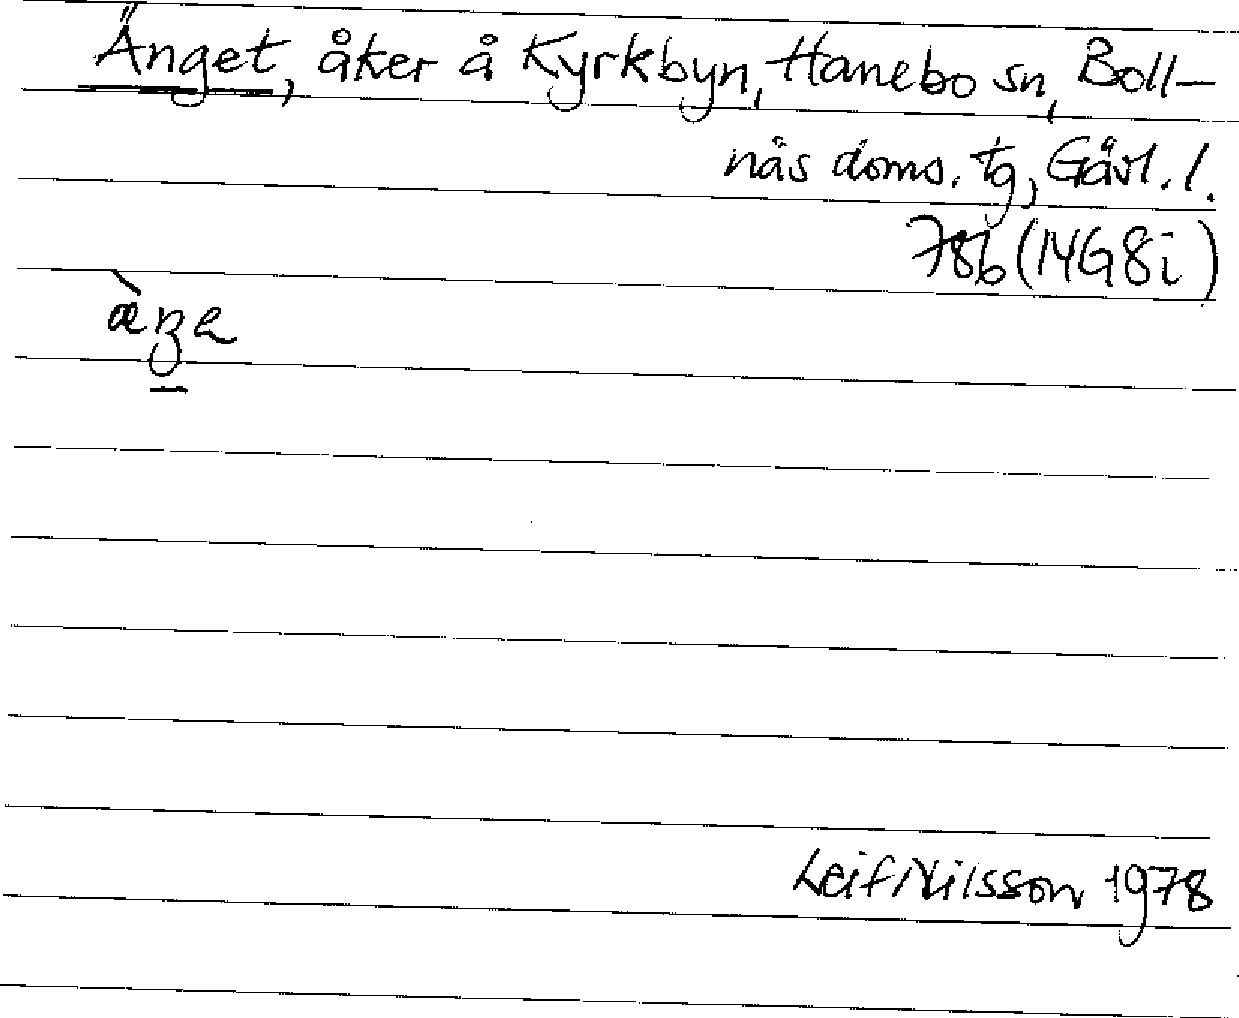 Änget, åker å Kyrkbyn, Hanebo sn, Boll-
näs doms. tg, Gävl. l.
78b (14G8i)
Leif Nilsson 1978